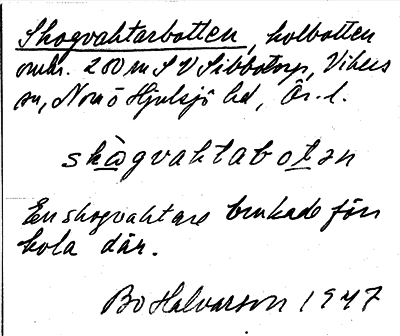 Skogvaktarbotten, kolbotten
omkr. 200 m SV Sibbotorp, Vikers
sn, Nora o Hjulsjö hd, Ör. l.
skògvaktabotən
En skogvaktare brukade förr
kola där.
Bo Halvarson 1947